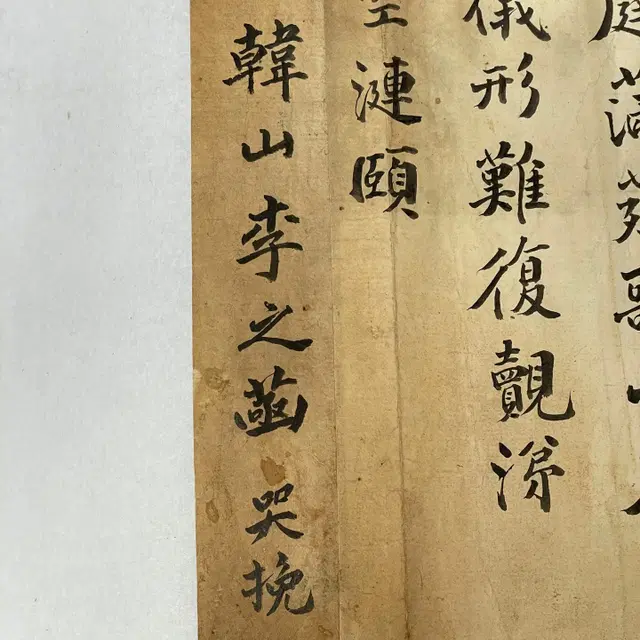 庭
儀形難復覿涕
漣頤
韓山李之菡哭挽